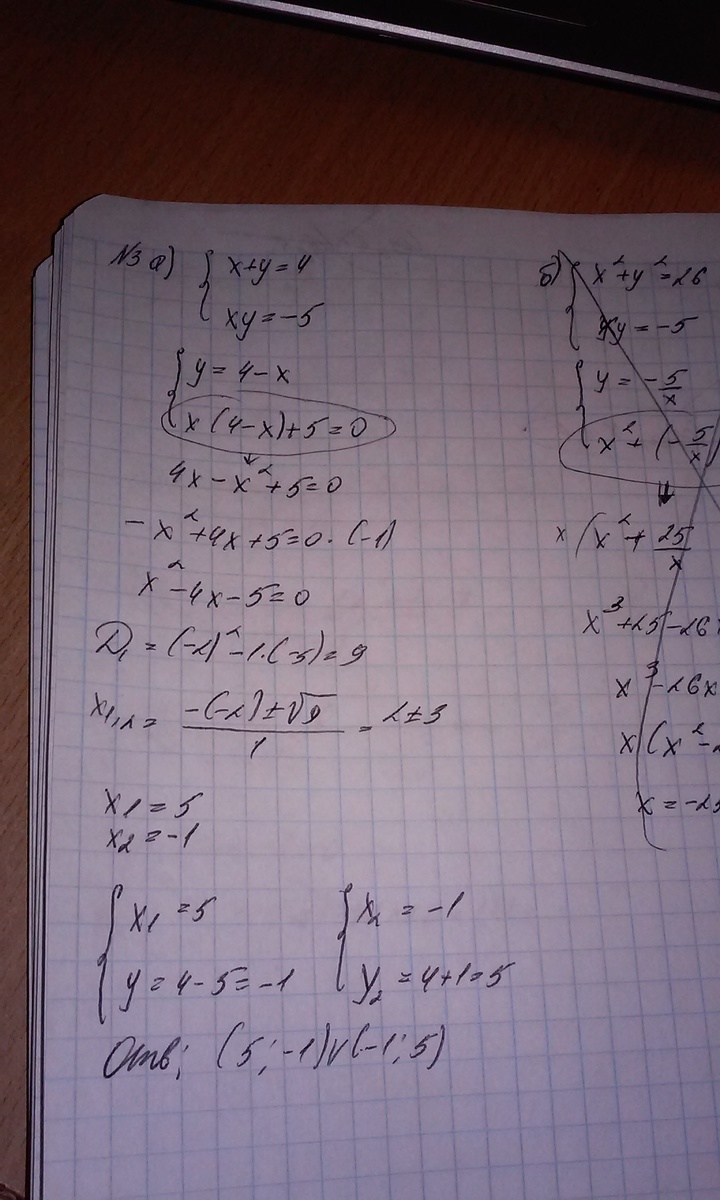 №3 а) { x+y=4
xy=-5
{ y = 4-x
x(4-x)+5=0
4x-x²+5=0
-x²+4x+5=0·(-1)
x²-4x-5=0
D₁ = (-2)²-1·(-5)=9
x₁,₂ = (-(-2)±√9)/1 = 2±3
x₁=5
x₂=-1
{ x₁=5
y=4-5=-1
{ x₂=-1
y₂=4+1=5
Отв; (5;-1)∨(-1;5)
б) { x²+y²=26
xy=-5
{ y=-5/x
x²+(-5/x)
x(x²+25/x
x³+25-26
x³-26x
x(x²-2
x=-25